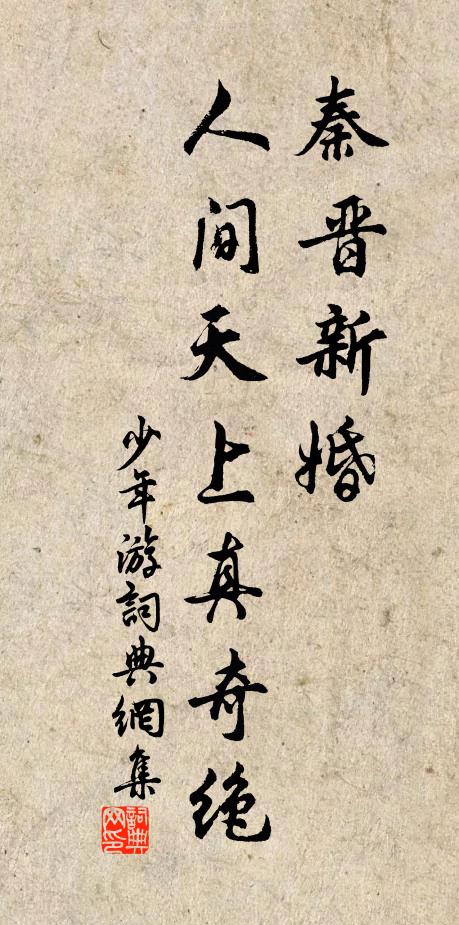 秦晋新婚
人间天上真奇绝
少年游詞典網集
詞典网印